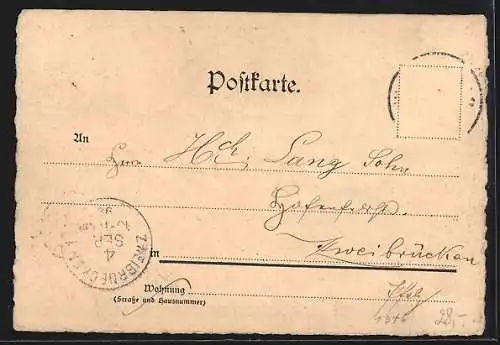 Postkarte.
An
Herrn Hch. Lang Sohn
in Zweibrücken
Wohnung
(Straße und Hausnummer)
Pfalz
ZWEIBRUECKEN
4
SEP
1346 28,-